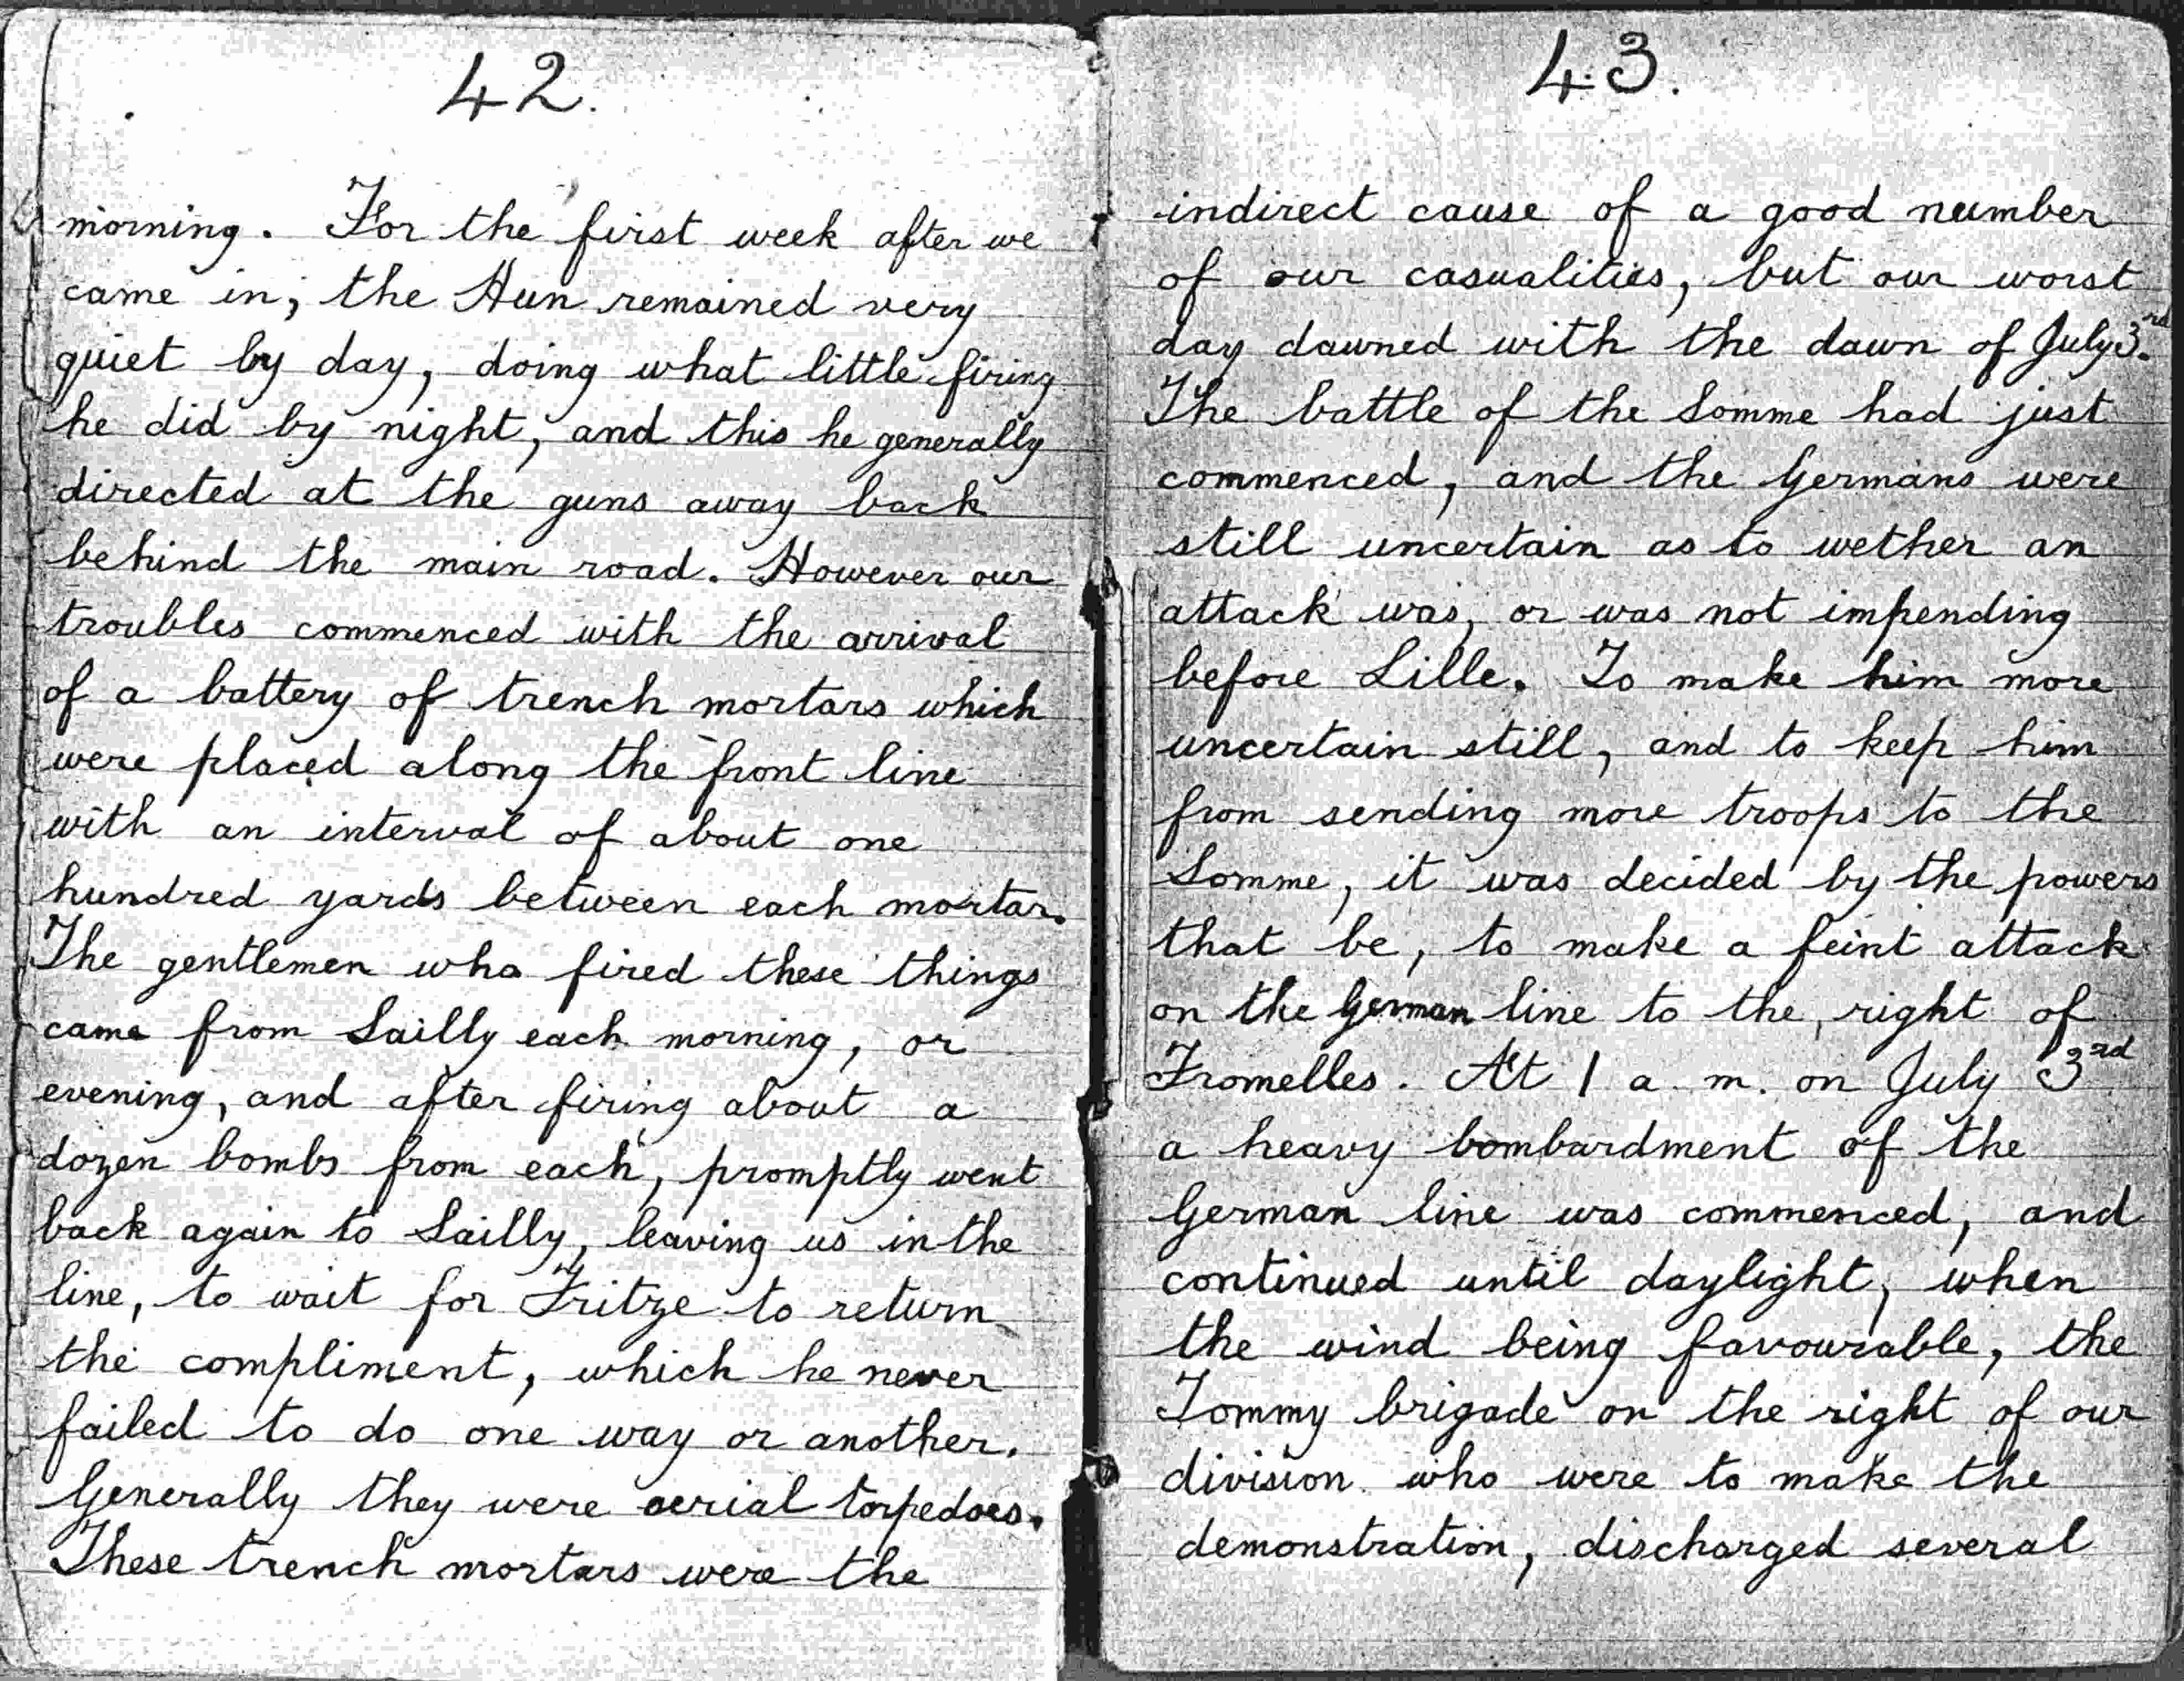 42.
morning. For the first week after we
came in, the Hun remained very
quiet by day, doing what little firing
he did by night, and this he generally
directed at the guns away back
behind the main road. However our
troubles commenced with the arrival
of a battery of trench mortars which
were placed along the front line
with an interval of about one
hundred yards between each mortar.
The gentlemen who fired these things
came from Sailly each morning, or
evening, and after firing about a
dozen bombs from each, promptly went
back again to Sailly, leaving us in the
line, to wait for Fritze to return
the compliment, which he never
failed to do one way or another.
Generally they were aerial torpedoes.
These trench mortars were the
43.
indirect cause of a good number
of our casualities, but our worst
day dawned with the dawn of July 3rd.
The battle of the Somme had just
commenced, and the Germans were
still uncertain as to wether an
attack was, or was not impending
before Lille. To make him more
uncertain still, and to keep him
from sending more troops to the
Somme, it was decided by the powers
that be, to make a feint attack
on the German line to the right of
Fromelles. At 1 a. m. on July 3rd
a heavy bombardment of the
German line was commenced, and
continued until daylight, when
the wind being favourable, the
Tommy brigade on the right of our
division who were to make the
demonstration, discharged several